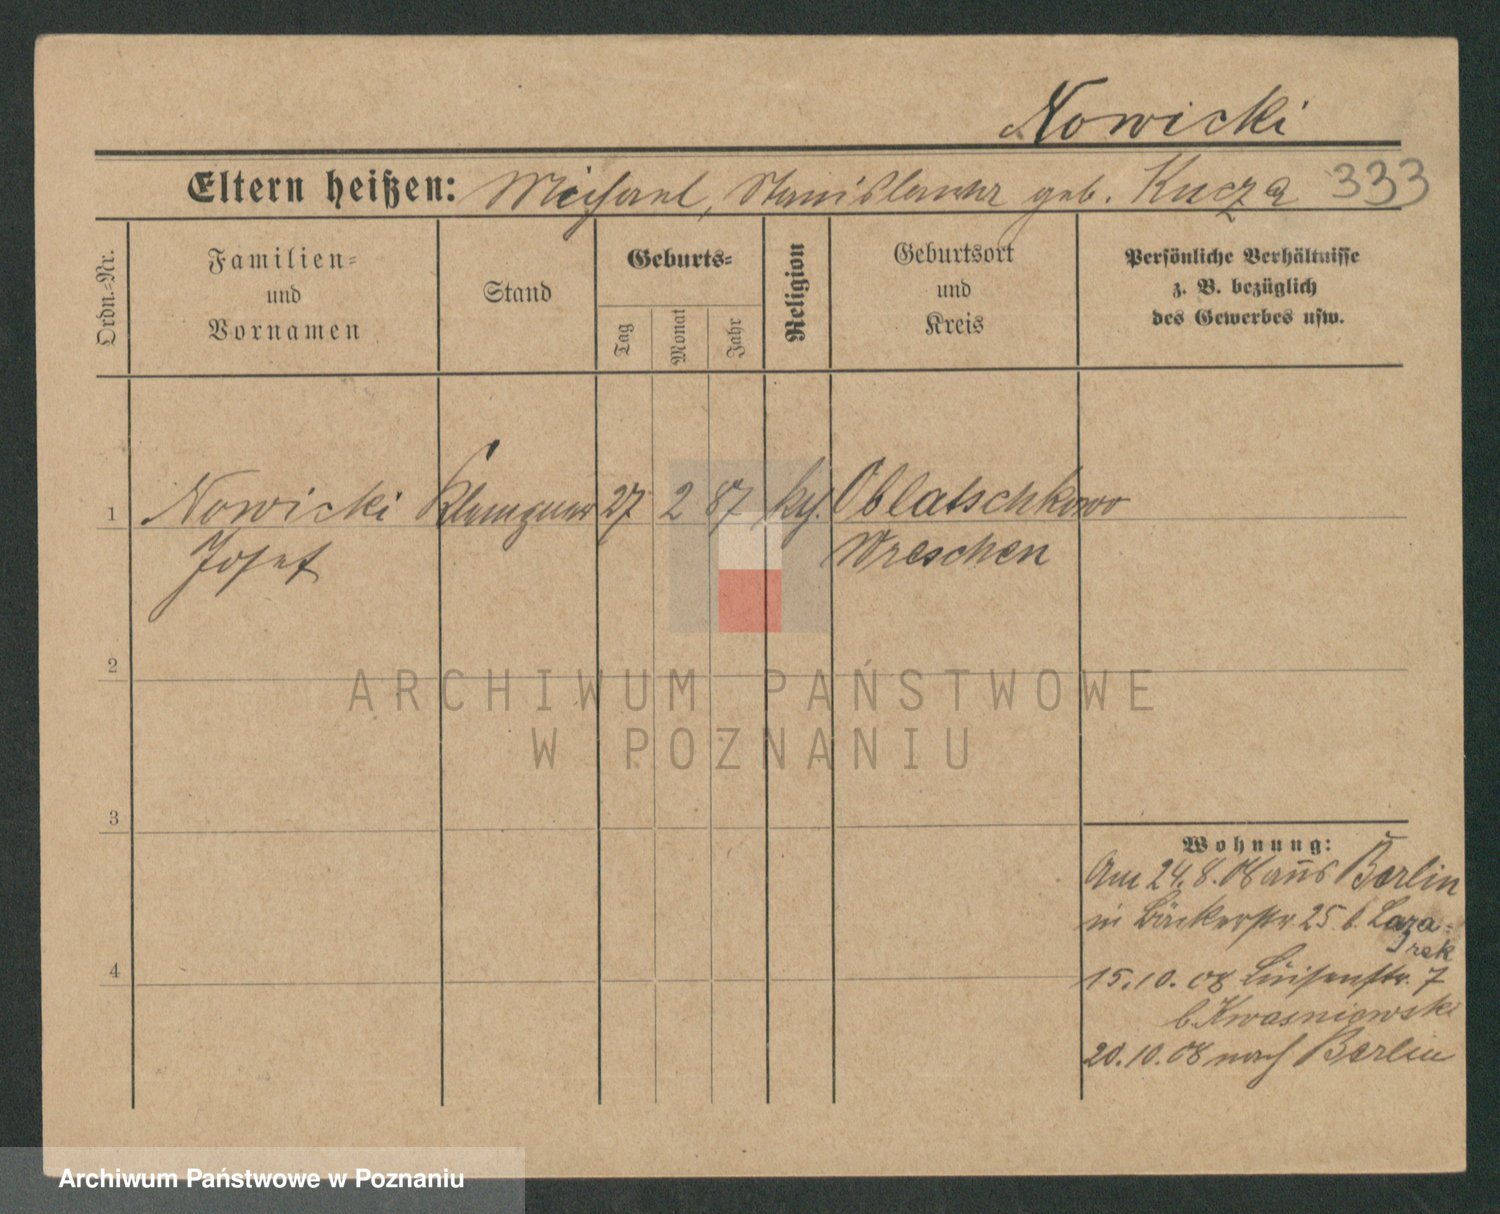 Nowicki
Eltern heißen: Michael, Stanislawa geb. Kucza 333
Ordn.=Nr.
Familien=
und
Vornamen
Stand
Geburts=
Tag
Monat
Jahr
Religion
Geburtsort
und
Kreis
Persönliche Verhältnisse
z. B. bezüglich
des Gewerbes usw.
1 Nowicki Klempner 27 2 87 kth. Oblatschkowo
Josef Wreschen
2
ARCHIWUM PAŃSTWOWE
W POZNANIU
3
Wohnung:
Am 24.8.08 aus Berlin
in Bäckerstr 25 b. Laza=
rek
4
15.10.08 Luisenstr. 7
b. Kwasniewski
20.10.08 nach Berlin
Archiwum Państwowe w Poznaniu